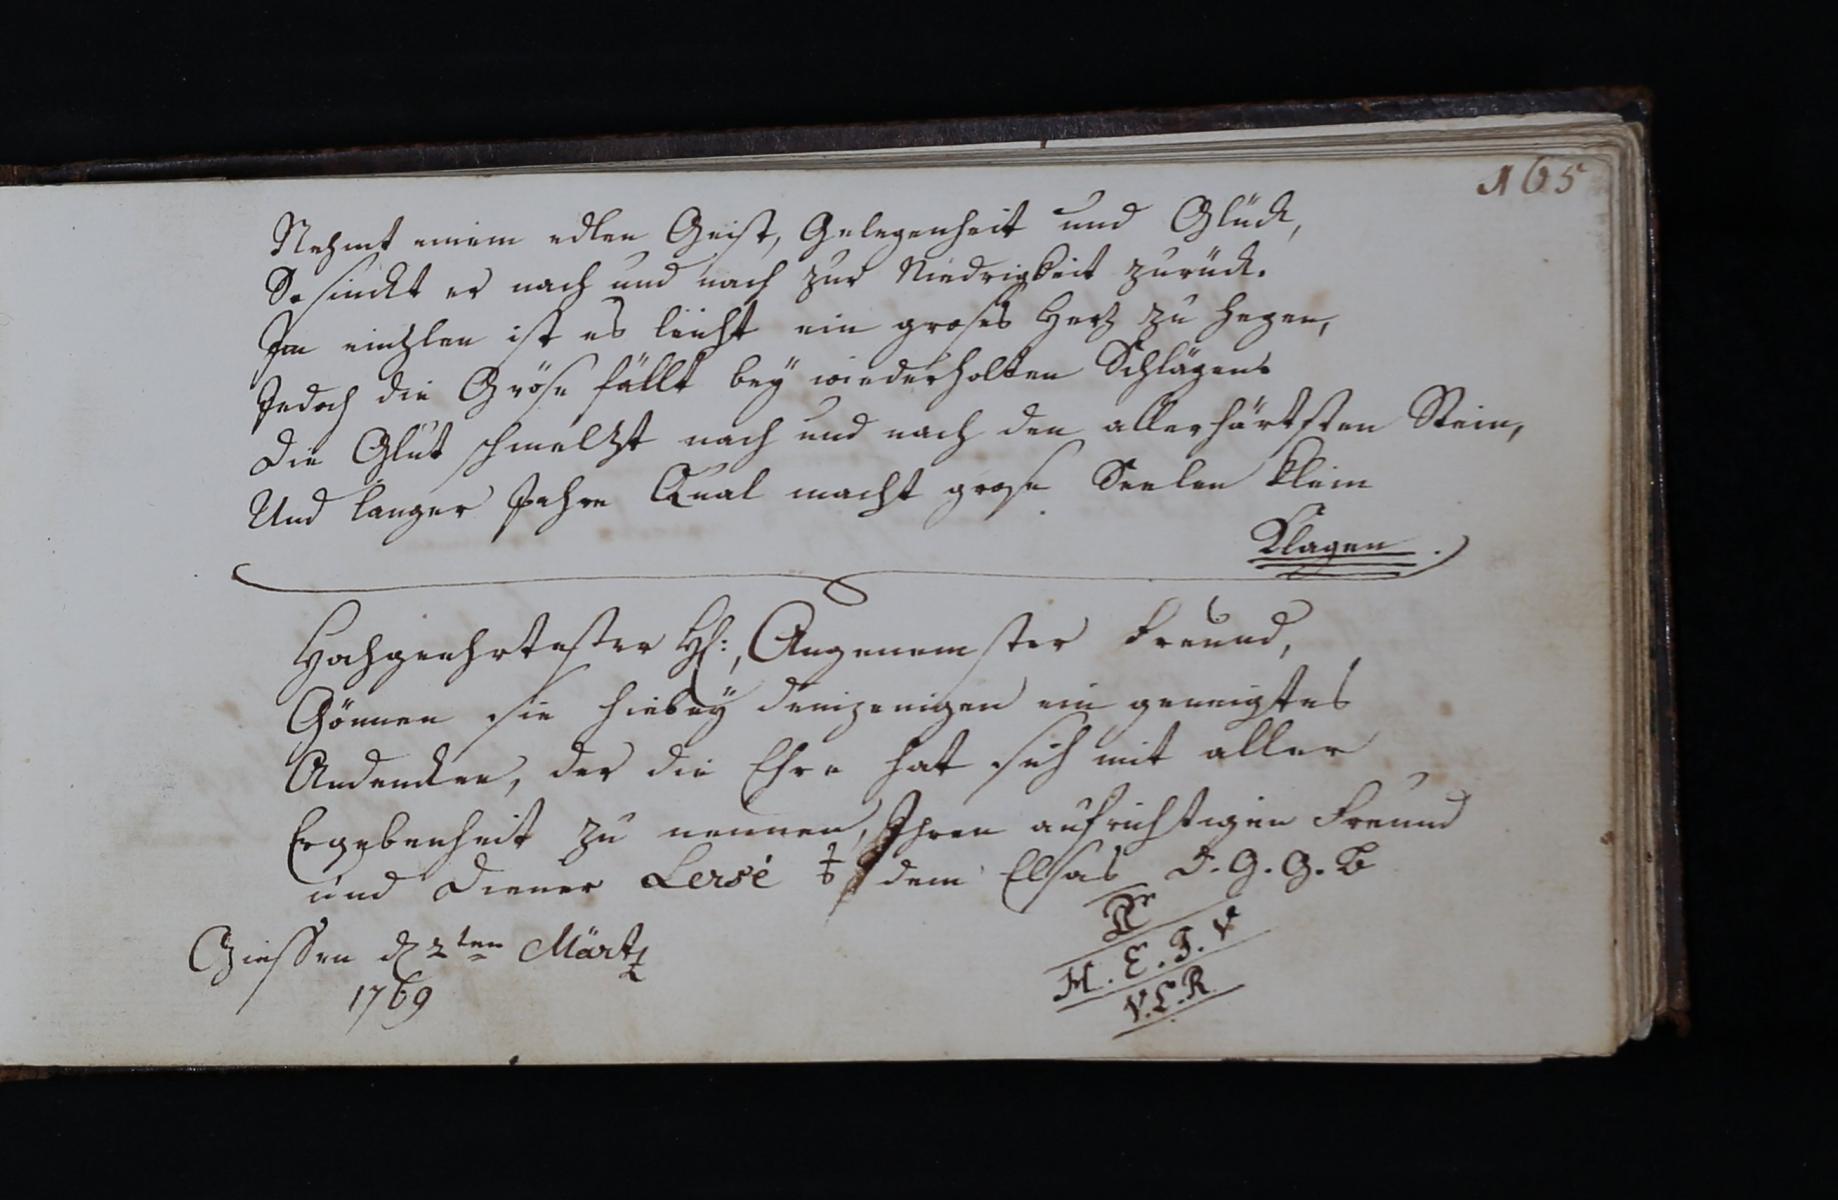 165
Nehmt einem edlen Geist, Gelegenheit und Glück,
So sinckt er nach und nach zur Niedrigkeit zurück.
Im einzlen ist es leicht ein groses Herz zu hegen,
Jedoch die Gröse fällt bey wiederholten Schlägen
Die Glut schmelzt nach und nach den allerhärtsten Stein,
Und langer Jahre Qual macht grose Seelen klein
Klagen.
Hochgeehrtester H:, Angenemster Freund,
Gönnen sie hiebey demjenigen ein geneigtes
Andencken, der die Ehre hat sich mit aller
Ergebenheit zu nennen, Ihren aufrichtigen Freund
und Diener Lersé dem Elsas D. G. G. B
Giessen d 2ten Märtz
1769
M. E. F. V
V. L. R.